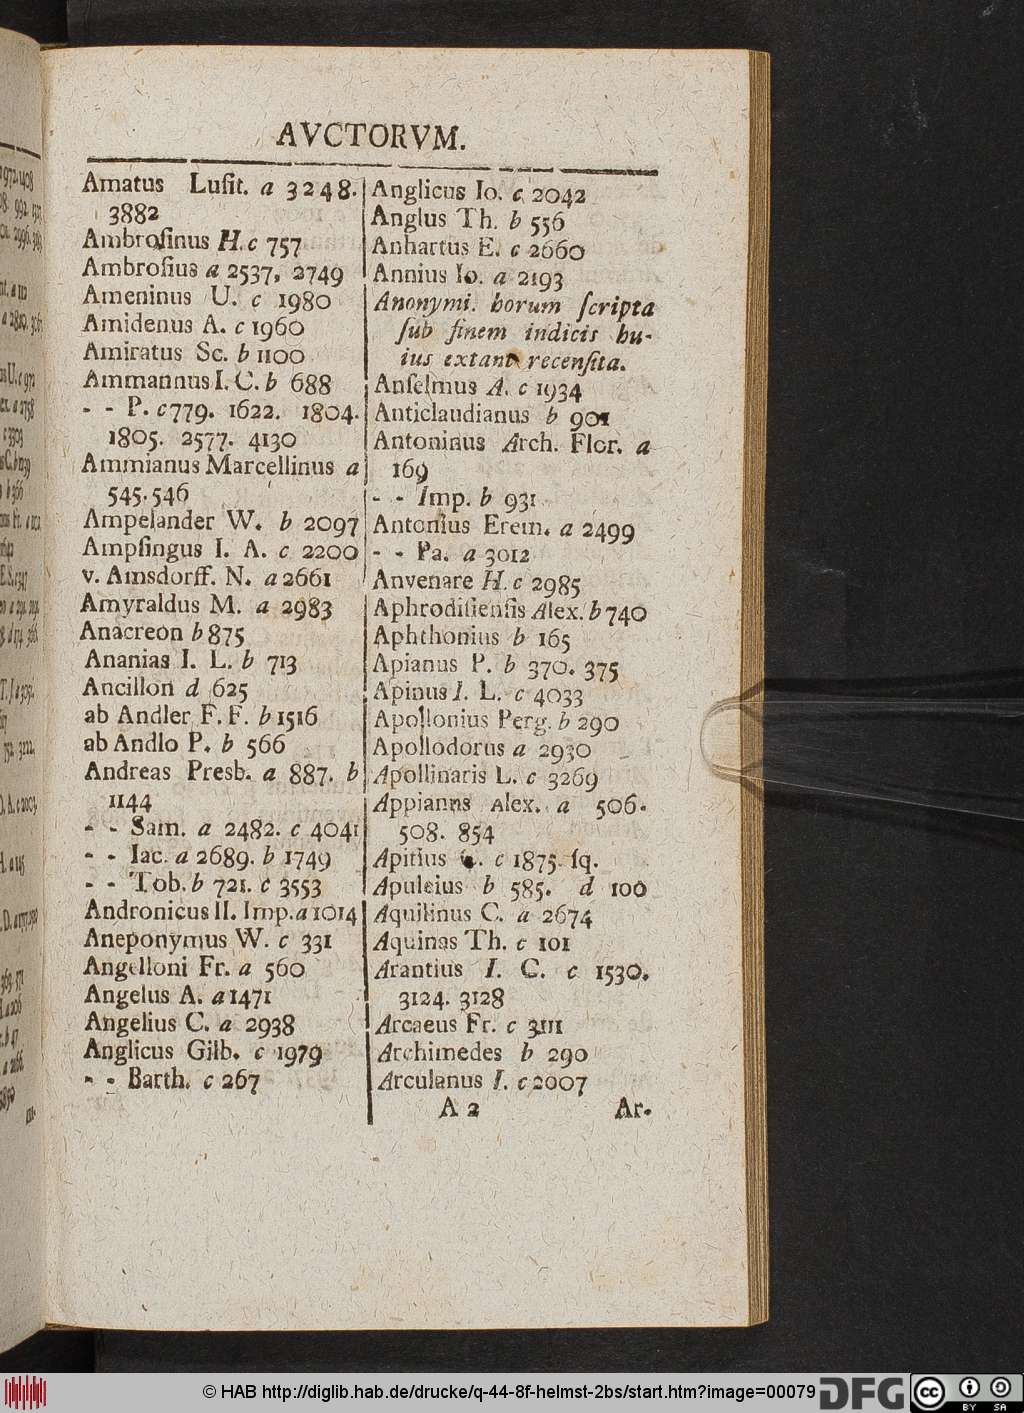 AVCTORVM.
Amatus Luſit. a 3248.
3882
Ambroſinus H. c 757
Ambroſius a 2537, 2749
Ameninus U. c 1980
Amidenus A. c 1960
Amiratus Sc. b 1100
Ammannus I. C. b 688
- - P. c 779. 1622. 1804.
1805. 2577. 4130
Ammianus Marcellinus a
545. 546
Ampelander W. b 2097
Ampſingus I. A. c 2200
v. Amsdorff. N. a 2661
Amyraldus M. a 2983
Anacreon b 875
Ananias I. L. b 713
Ancillon d 625
ab Andler F. F. b 1516
ab Andlo P. b 566
Andreas Presb. a 887. b
1144
- - Sam. a 2482. c 4041
- - Iac. a 2689. b 1749
- - Tob. b 721. c 3553
Andronicus II. Imp. a 1014
Aneponymus W. c 331
Angelloni Fr. a 560
Angelus A. a 1471
Angelius C. a 2938
Anglicus Gilb. c 1979
- - Barth. c 267
Anglicus Io. c 2042
Anglus Th. b 556
Anhartus E. c 2660
Annius Io. a 2193
Anonymi. horum ſcripta
ſub finem indicis hu-
ius extant recenſita.
Anſelmus A. c 1934
Anticlaudianus b 901
Antoninus Arch. Flor. a
169
- - Imp. b 931
Antonius Erem. a 2499
- - Pa. a 3012
Anvenare H. c 2985
Aphrodiſienſis Alex. b 740
Aphthonius b 165
Apianus P. b 370. 375
Apinus I. L. c 4033
Apollonius Perg. b 290
Apollodorus a 2930
Apollinaris L. c 3269
Appianns Alex. a 506.
508. 854
Apitius c 1875. ſq.
Apuleius b 585. d 100
Aquilinus C. a 2674
Aquinas Th. c 101
Arantius I. C. c 1530.
3124. 3128
Arcaeus Fr. c 3111
Archimedes b 290
Arculanus I. c 2007
A 2 Ar-
© HAB http://diglib.hab.de/drucke/q-44-8f-helmst-2bs/start.htm?image=00079
DFG
cc BY SA